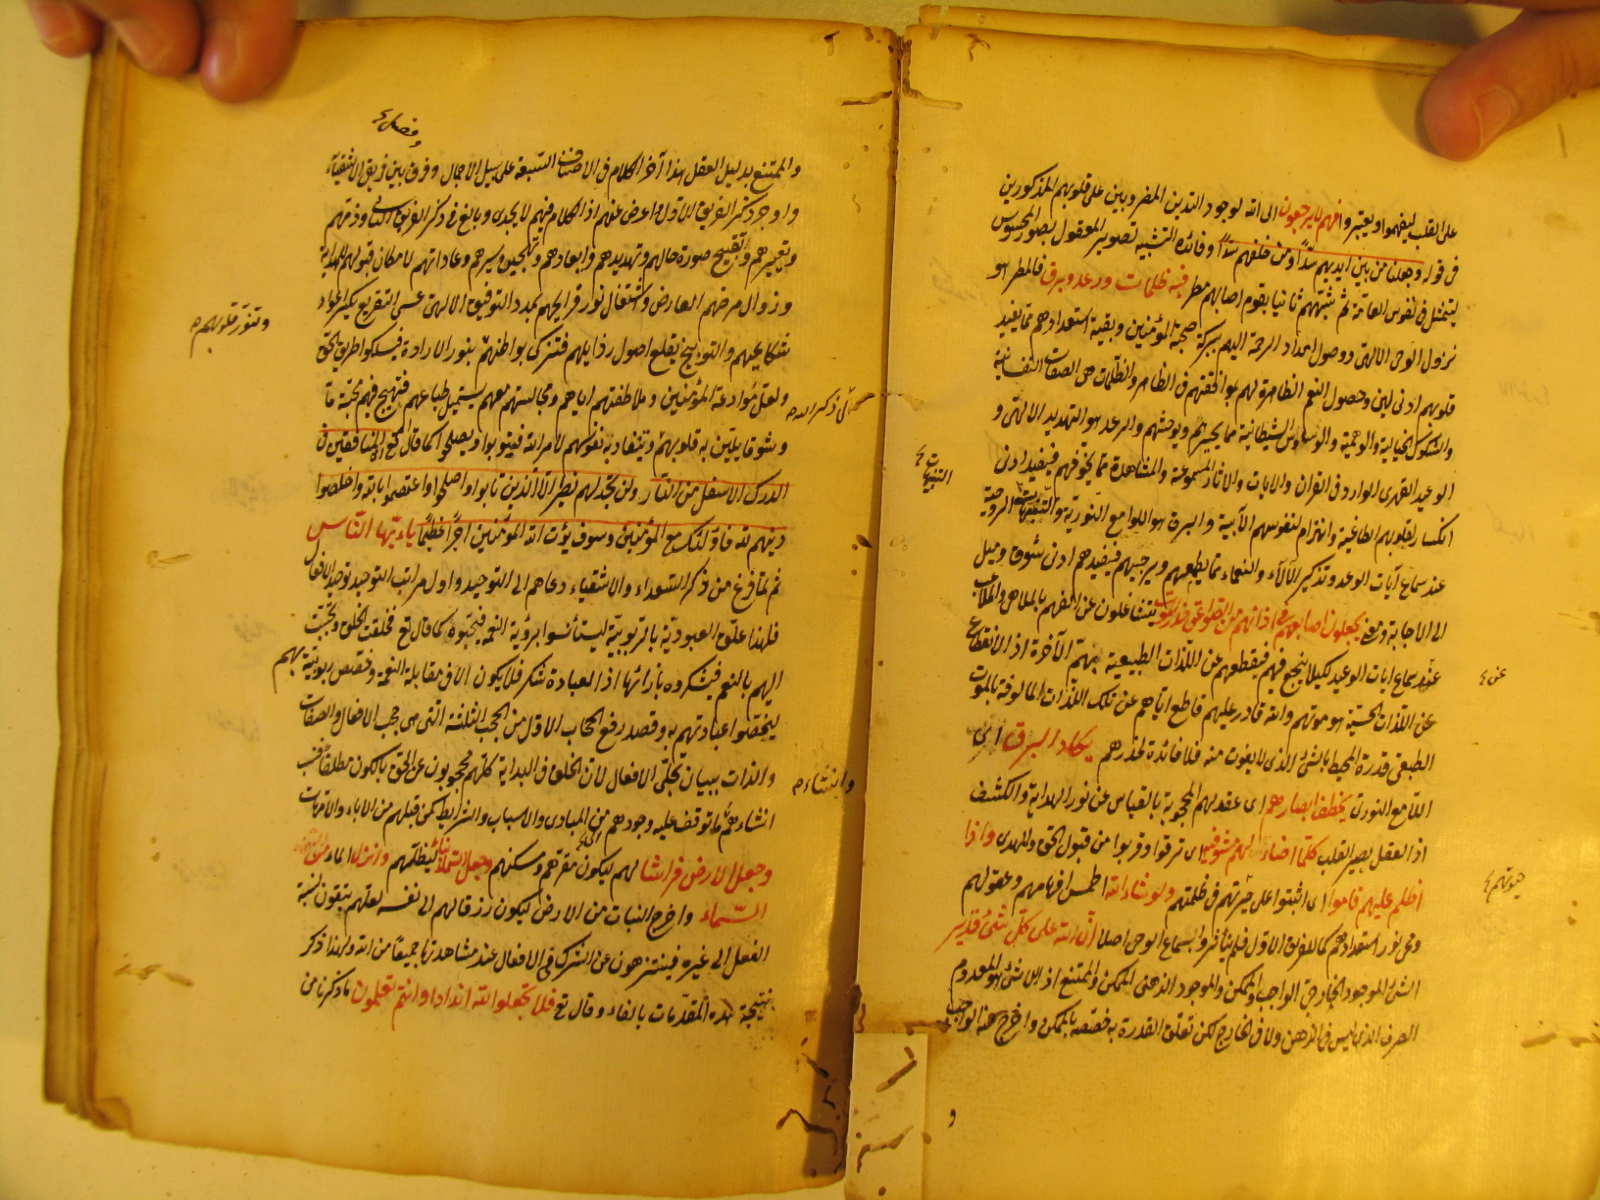 على القلب ليفهموا ويعتبروا فهم لا يرجعون الى الله لوجود السدين المضروبين على قلوبهم المذكورين
فى قوله وجعلنا من بين ايديهم سدا ومن خلفهم سدا وفائدة التشبيه تصوير المعقول بصورة المحسوس
ليتمثل فى نفوس العامة ثم شبههم ثانيا بقوم اصابهم مطر فيه ظلمات ورعد وبرق فالمطر هو
نزول الوحى الالهى ووصول امداد الرحمة اليهم ببركة صحبة المؤمنين وبقية استعدادهم مما يفيد
قلوبهم ادنى لين وحصول النعم الظاهرة لهم بموافقتهم فى الظاهر والظلمات هى الصفات النفسانية
والشكوك الخيالية والوهمية والوساوس الشيطانية مما يحيرهم ويوحشهم والرعد هو التهديد الالهى و
الوعيد القهرى الوارد فى القران والايات والاثار المسموعة والمشاهدة مما يخوفهم فيفيد ادنى
انكسار لقلوبهم الطاغية وانهزام لنفوسهم الآبية والبرق هو اللوامع النورية والتنبيهات الروحية
التنبيهات
عند سماع آيات الوعد وتذكير الآلاء والنعماء مما يطمعهم ويرجيهم فيفيدهم ادنى شوق وميل
الى الاجابة ومعنى يجعلون اصابعهم فى اذانهم من الصواعق حذر الموت يتشاغلون عن الفهم بالملاهى والملاعب
عند سماع ايات الوعيد لكيلا ينجع فيهم فيقطعهم عن اللذات الطبيعية بهم الآخرة اذ الانقطاع
عن
عن اللذات الحسية هو موتهم والله قادر عليهم قاطع اياهم عن تلك اللذات المالوفة بالموت
الطبيعى قدرة المحيط بالشئ الذى لا يفوت منه فلا فائدة لحذرهم يكاد البرق اى
اللامع النورى يخطف ابصارهم اى عقولهم المحجوبة بالقياس عن نور الهداية والكشف
اذ العقل بصر القلب كلما اضاء لهم مشوا فيه اى ترقوا وقربوا من قبول الحق والهدى واذا
اظلم عليهم قاموا اى اثبتوا على حيرتهم فى ظلمتهم ولو شاء الله لطمس افهامهم وعقولهم
ومحى نور استعدادهم كما للفريق الاول فلم يتأثروا بسماع الوحى اصلا ان الله على كل شئ قدير
الشئ الموجود الخارجى الواجب والممكن والموجود الذهنى الممكن والممتنع اذ اللاشئ هو المعدوم
الصرف الذى ليس فى الذهن ولا فى الخارج لكن تعلق القدرة به خصصه بالممكن واخرج عنه الواجب
و
والممتنع بدليل العقل هذا آخر الكلام فى الاصناف السبعة على سبيل الاجمال وفرق بين فريق الاشقياء
واوجز ذكر الفريق الاول واعرض عنهم اذ الكلام فيهم لا يجدى وبالغ فى ذكر الفريق الثانى وذمهم
وتعييرهم وتقبيح صورة حالهم وتهديدهم وايعادهم وتهجين سيرهم وعاداتهم لامكان قبولهم للهداية
وزوال مرضهم العارض واشتعال نور قرايحهم بمدد التوفيق الالهى عسى التقريع يكسر اعواد
وتنور قلوبهم
شكائمهم والتوبيخ يقلع اصول رذايلهم فتتزكى بواطنهم بنور الارادة فيسلكوا طريق الحق
ولعل موادعة المؤمنين وملاطفتهم اياهم ومجالستهم معهم يستميل طباعهم فتهيج فيهم محبة ما
وشوقا يلين به قلوبهم وينقاد به نفوسهم لامر الله فيتوبوا ويصلحوا كما قال ان المنافقين فى
الى ذكر الله
الدرك الاسفل من النار ولن تجد لهم نصيرا الا الذين تابوا واصلحوا واعتصموا بالله واخلصوا
دينهم لله فاولئك مع المؤمنين وسوف يؤت الله المؤمنين اجرا عظيما يا ايها الناس
ثم لما فرغ من ذكر السعداء والاشقياء دعاهم الى التوحيد واول مراتب التوحيد توحيد الافعال
فلهذا علق العبودية بالربوبية ليستأنسوا برؤية النعمة فيحبوه كما قال تع فخلقت الخلق وتحببت
اليهم بالنعم فيشكروه بازائها اذ العبادة شكر فلا يكون الا فى مقابلة النعمة وخصص ربوبيته بهم
ليخصوا عبادتهم به وقصد رفع الحجاب الاول من الحجب الثلثة التى هى حجب الافعال والصفات
والذات ببيان تجلى الافعال لان الخلق فى البداية كلهم محجوبون عن الحق بالكون مطلقا فنسب
وانشاء
انشاءهم ما توقف عليه وجودهم من المبادى والاسباب والشرايط كمن قبلهم من الاباء والامهات
وجعل الارض فراشا لهم ليكون مقرهم ومسكنهم وجعل السماء بناء ليظلهم وانزل الماء من
السماء واخرج النبات من الارض ليكون رزقا لهم الى نفسه لعلهم يتقون نسبة
الفعل الى غيره فيتنزهون عن الشرك فى الافعال عند مشاهدتها جميعا من الله ولهذا ذكر
نتيجة هذه المقدمات بالفاء وقال تع فلا تجعلوا لله اندادا وانتم تعلمون ما ذكرنا من